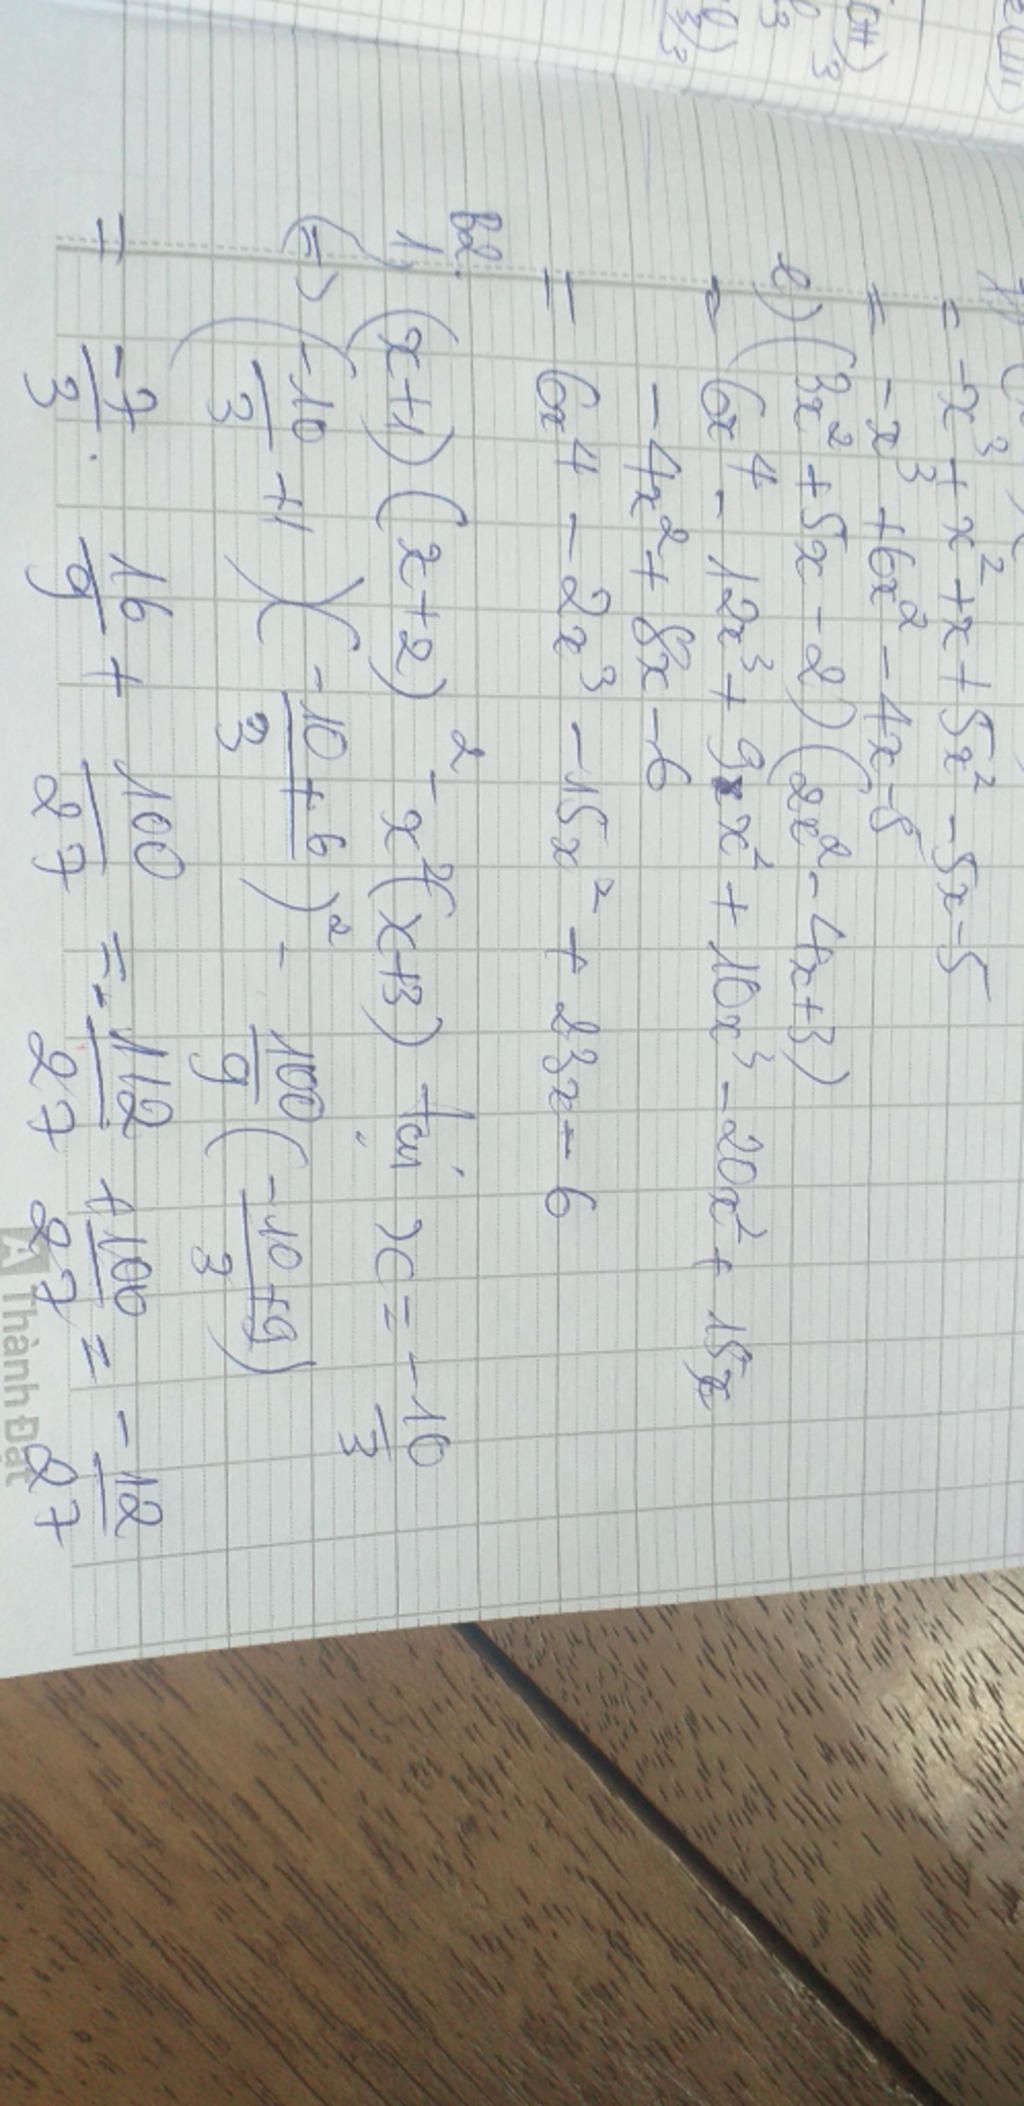 = -x³ + x² + x + 5x² - 5x - 5
= -x³ + 6x² - 4x - 5
e) (3x² + 5x - 2)(2x² - 4x + 3)
= 6x⁴ - 12x³ + 9x² + 10x³ - 20x² + 15x
- 4x² + 8x - 6
= 6x⁴ - 2x³ - 15x² + 23x - 6
b2.
1) (x+1)(x+2)² - x²(x+3) tại x = -10/3
(=) (-10/3 + 1)((-10+6)/3)² - 100/9 ((-10+9)/3)
= -7/3 . 16/9 + 100/27 = -112/27 + 100/27 = -12/27
Thành Đạt